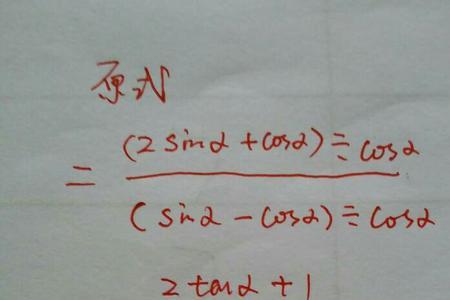 原式
= (2sinα+cosα)÷cosα
(sinα-cosα)÷cosα
2tanα+1